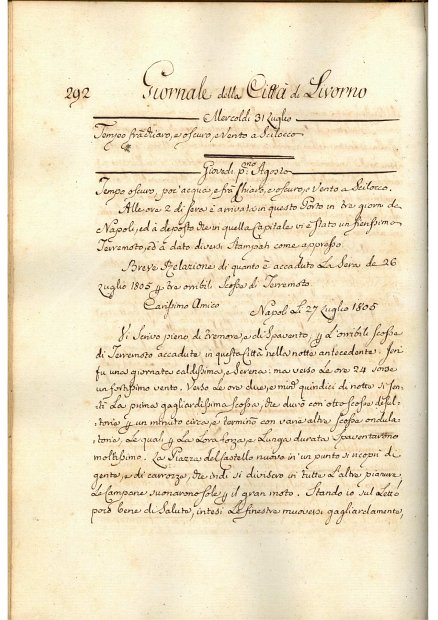 292 Giornale della Città di Livorno
Mercoldì 31 Luglio
Tempo frà chiaro, e oscuro, e vento a Scilocco
Giovedì pmo Agosto
Tempo oscuro, poc'acqua, e frà chiaro, e oscuro, e vento a Scilocco.
Alle ore 2 di sera è arrivata in questo Porto in tre giorni da
Napoli, ed à deposto che in quella Capitale vi è stato un fierissimo
Terremoto, ed à dato diversi Stampati come appresso
Breve Relazione di quanto è accaduto La Sera de 26
Luglio 1805 p tre orribili Scosse di Terremoto
Carissimo Amico
Napoli Li 27 Luglio 1805
Vi Scrivo pieno di tremore, e di Spavento, p L'orribili Scosse
di Terremoto accadute in questa Città nella notte antecedente. Jeri
fù una giornata caldissima, e Serena: ma verso Le ore 24 sorse
un fortissimo vento. Verso Le ore due, e mezza quindici di notte si sentì
La prima gagliardissima Scossa, che durò con otto Scosse
p un minuto circa, e terminò con varie altre Scosse ondula-
torie, Le quali p La Loro forza, e Lunga durata Spaventarono
moltissimo. La Piazza del Castello nuovo in un punto si ricoprì di
gente, e di carrozze, che indi si divisero in tutte L'altre pianure
Le Campane suonarono sole p il gran moto. Stando io sul Letto
poco bene di Salute, intesi Le finestre muoversi gagliardamente,